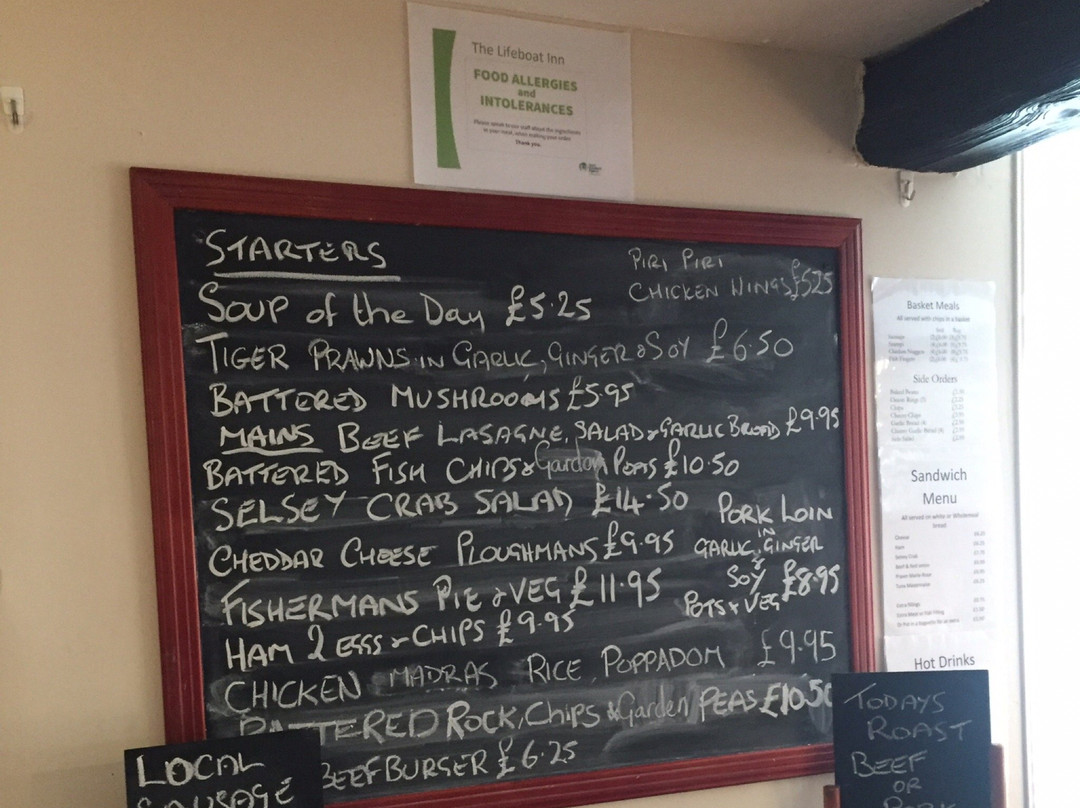 The Lifeboat Inn
FOOD ALLERGIES
and
INTOLERANCES
Please speak to our staff about the ingredients
in your meal, when making your order
Thank you.
STARTERS
PIRI PIRI
CHICKEN WINGS £5.25
SOUP of the Day £5.25
TIGER PRAWNS IN GARLIC, GINGER & SOY £6.50
BATTERED MUSHROOMS £5.95
MAINS BEEF LASAGNE, SALAD & GARLIC BREAD £9.95
BATTERED FISH CHIPS & Garden Peas £10.50
SELSEY CRAB SALAD £14.50
CHEDDAR CHEESE PLOUGHMANS £9.95
PORK LOIN
IN
GARLIC, GINGER
&
SOY £8.95
POTS & VEG
FISHERMANS PIE & VEG £11.95
HAM 2 EGGS & CHIPS £9.95
CHICKEN MADRAS RICE, POPPADOM £9.95
BATTERED ROCK, Chips & Garden PEAS £10.50
BEEFBURGER £6.25
LOCAL
SAUSAGE
Basket Meals
All served with chips in a basket
Sausage
Scampi
Chicken Nuggets
Fish Fingers
Side Orders
Baked Beans
Onion Rings
Chips
Cheesy Chips
Garlic Bread
Cheesy Garlic Bread
Side Salad
Sandwich
Menu
All served on white or Wholemeal
bread
Cheese
Ham
Selsey Crab
Beef & Red onion
Prawn Marie Rose
Tuna Mayonnaise
Hot Drinks
TODAYS
ROAST
BEEF
OR
PORK